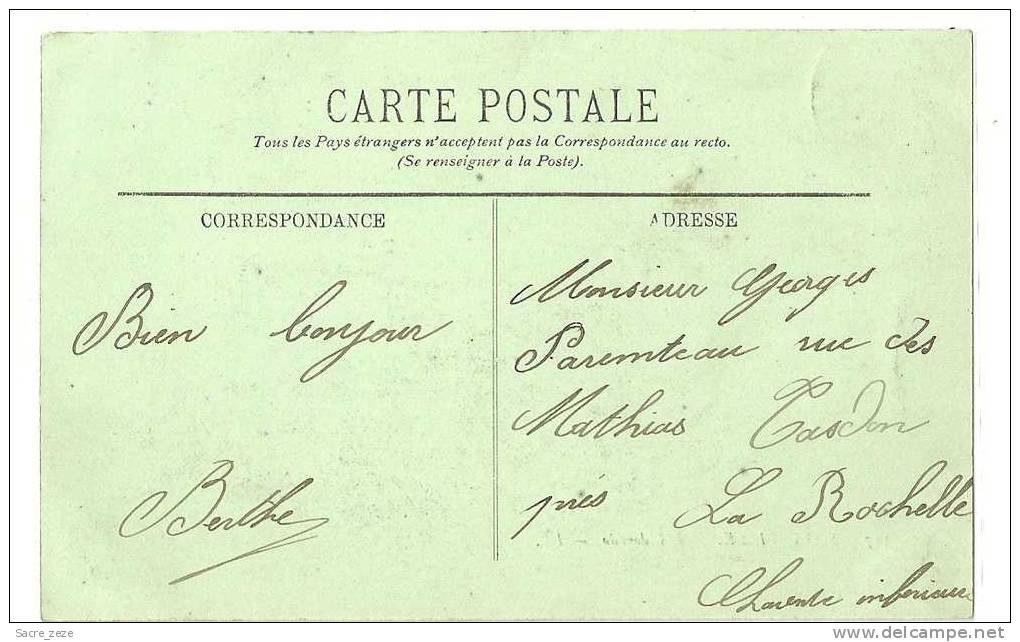 CARTE POSTALE
Tous les Pays étrangers n'acceptent pas la Correspondance au recto.
(Se renseigner à la Poste).
CORRESPONDANCE
Bien bonjour
Berthe
ADRESSE
Monsieur Georges
Paremteau rue des
Mathias Tasdon
près La Rochelle
Charente inférieure
Sacre_zeze
www.delcampe.net